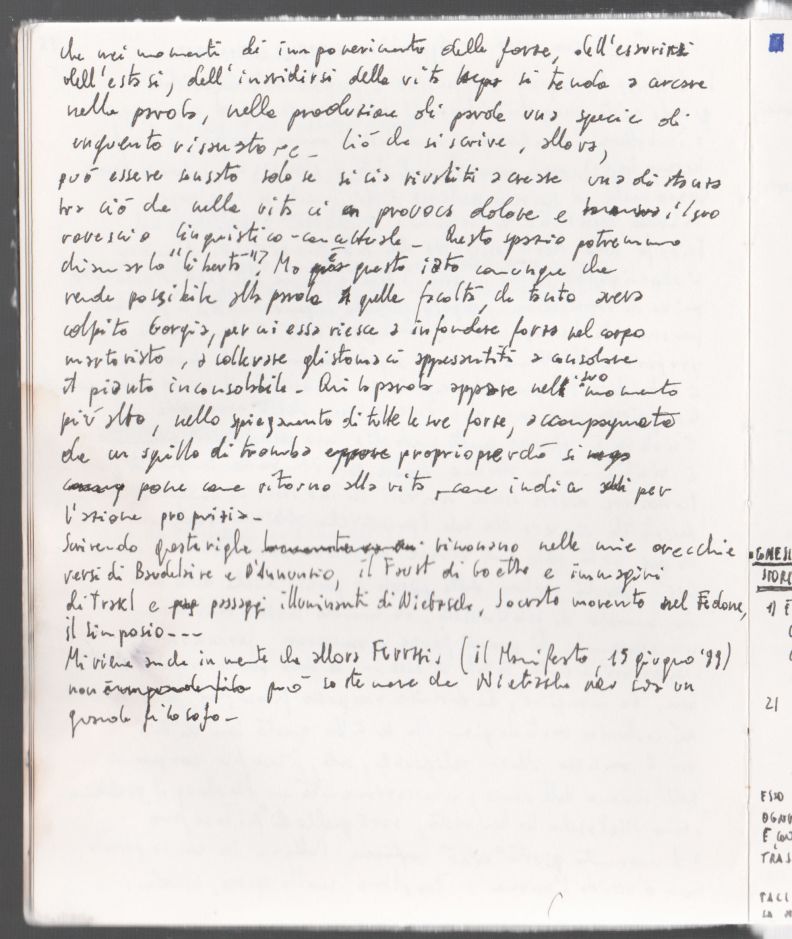 che nei momenti di impoverimento delle forze, dell'esaurirsi
dell'estasi, dell'inaridirsi della vita si tenda a cercare
nella parola, nella produzione di parole una specie di
unguento risanatore_ Ciò che si scrive, allora,
può essere sensato solo se si sia riusciti a creare una distanza
tra ciò che nella vita ci provoca dolore e il suo
rovescio linguistico-concettuale_ Questo spazio potremmo
chiamarlo "libertà"? Ma è questo iato comunque che
rende possibile alla parola quella facoltà, che tanto aveva
colpito Gorgia, per cui essa riesce a infondere forza nel corpo
martoriato, a sollevare gli stomaci appesantiti a consolare
il pianto inconsolabile_ Qui la parola appare nel suo momento
più alto, nello spiegamento di tutte le sue forze, accompagnata
da un squillo di tromba proprio perché si
pone come ritorno alla vita, come indica per
l'azione propizia_
Scrivendo queste righe risuonano nelle mie orecchie
versi di Baudelaire e D'Annunzio, il Faust di Goethe e immagini
di Trakl e passaggi illuminanti di Nietzsche, Socrate morente nel Fedone,
il Simposio---
Mi viene anche in mente che allora (il Manifesto, 15 giugno '99)
non può sostenere che Nietzsche non sia un
grande filosofo_
1)
2)
ESSO